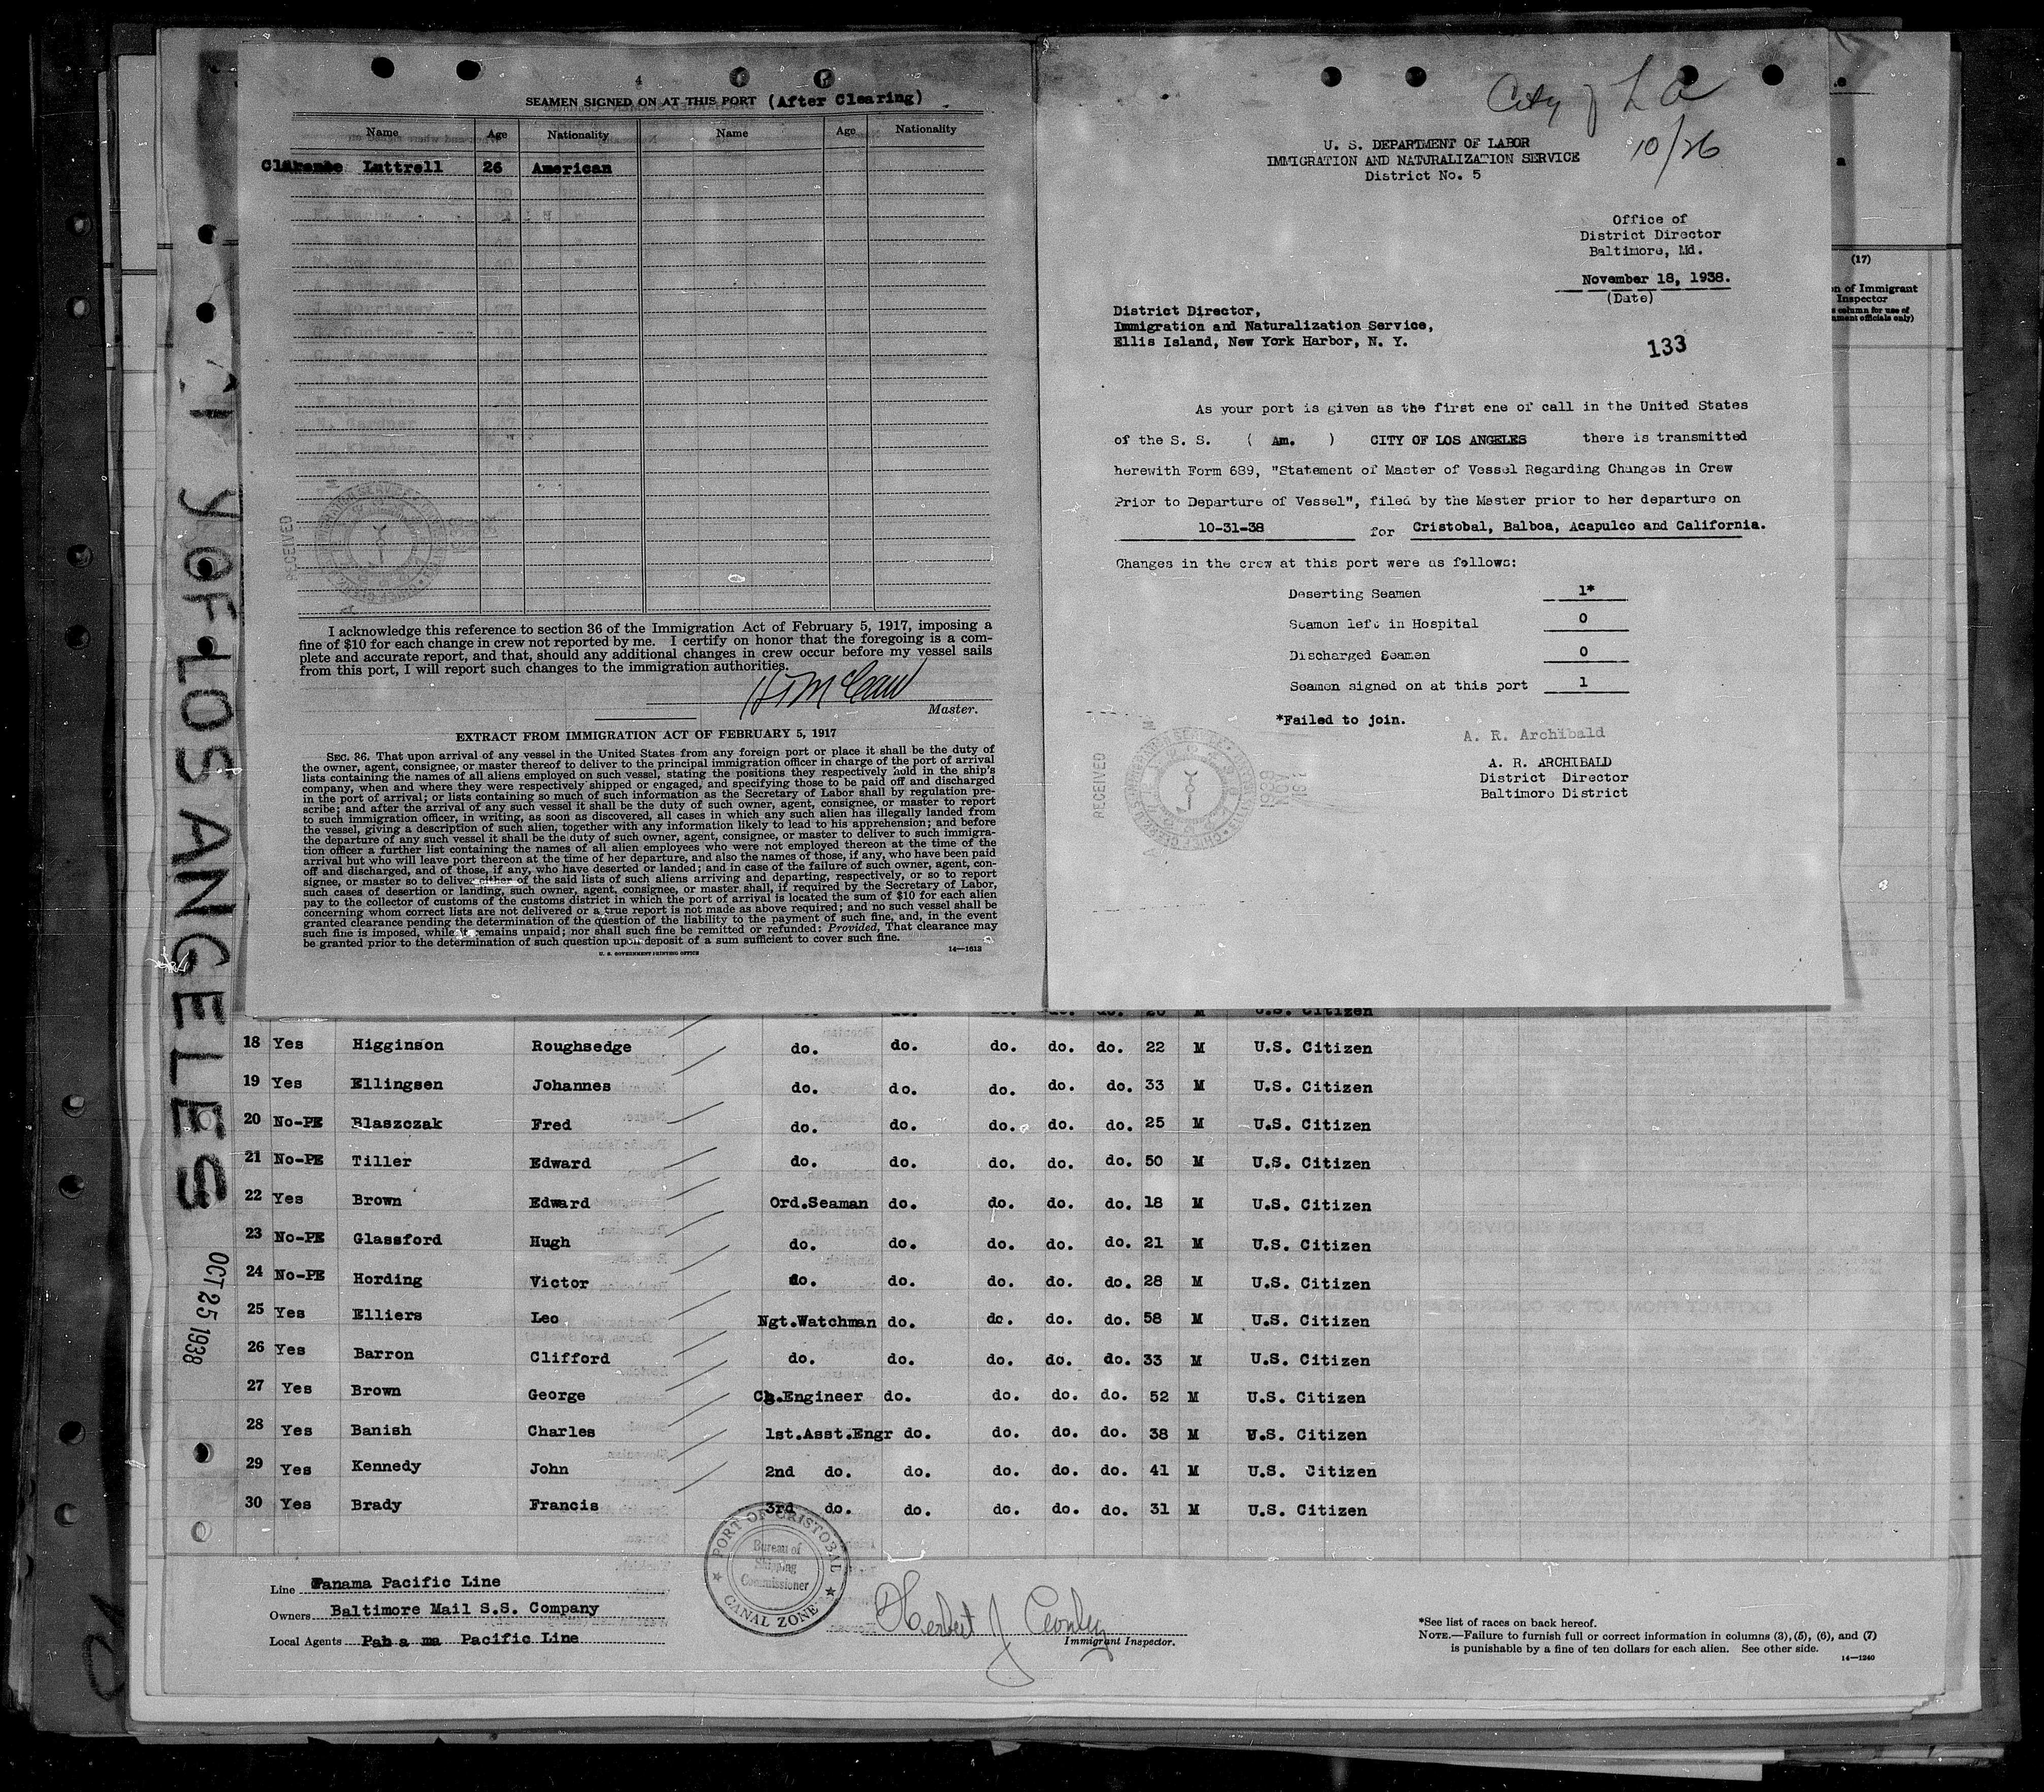 4
SEAMEN SIGNED ON AT THIS PORT (After Clearing)
Name Age Nationality Name Age Nationality
Luttrell 26 American
RECEIVED
I acknowledge this reference to section 36 of the Immigration Act of February 5, 1917, imposing a
fine of $10 for each change in crew not reported by me. I certify on honor that the foregoing is a com-
plete and accurate report, and that, should any additional changes in crew occur before my vessel sails
from this port, I will report such changes to the immigration authorities.
Master.
EXTRACT FROM IMMIGRATION ACT OF FEBRUARY 5, 1917
SEC. 36. That upon arrival of any vessel in the United States from any foreign port or place it shall be the duty of
the owner, agent, consignee, or master thereof to deliver to the principal immigration officer in charge of the port of arrival
lists containing the names of all aliens employed on such vessel, stating the positions they respectively hold in the ship's
company, when and where they were respectively shipped or engaged, and specifying those to be paid off and discharged
in the port of arrival; or lists containing so much of such information as the Secretary of Labor shall by regulation pre-
scribe; and after the arrival of any such vessel it shall be the duty of such owner, agent, consignee, or master to report
to such immigration officer, in writing, as soon as discovered, all cases in which any such alien has illegally landed from
the vessel, giving a description of such alien, together with any information likely to lead to his apprehension; and before
the departure of any such vessel it shall be the duty of such owner, agent, consignee, or master to deliver to such immigra-
tion officer a further list containing the names of all alien employees who were not employed thereon at the time of the
arrival but who will leave port thereon at the time of her departure, and also the names of those, if any, who have been paid
off and discharged, and of those, if any, who have deserted or landed; and in case of the failure of such owner, agent, con-
signee, or master so to deliver either of the said lists of such aliens arriving and departing, respectively, or so to report
such cases of desertion or landing, such owner, agent, consignee, or master shall, if required by the Secretary of Labor,
pay to the collector of customs of the customs district in which the port of arrival is located the sum of $10 for each alien
concerning whom correct lists are not delivered or a true report is not made as above required; and no such vessel shall be
granted clearance pending the determination of the question of the liability to the payment of such fine, and, in the event
such fine is imposed, while it remains unpaid; nor shall such fine be remitted or refunded: Provided, That clearance may
be granted prior to the determination of such question upon deposit of a sum sufficient to cover such fine.
U. S. GOVERNMENT PRINTING OFFICE 14—1612
City of L A
10/26
U. S. DEPARTMENT OF LABOR
IMMIGRATION AND NATURALIZATION SERVICE
District No. 5
Office of
District Director
Baltimore, Md.
November 18, 1938.
(Date)
District Director,
Immigration and Naturalization Service,
Ellis Island, New York Harbor, N. Y.
133
As your port is given as the first one of call in the United States
of the S. S. ( Am. ) CITY OF LOS ANGELES there is transmitted
herewith Form 689, "Statement of Master of Vessel Regarding Changes in Crew
Prior to Departure of Vessel", filed by the Master prior to her departure on
10-31-38 for Cristobal, Balboa, Acapulco and California.
Changes in the crew at this port were as follows:
Deserting Seamen 1*
Seamen left in Hospital 0
Discharged Seamen 0
Seamen signed on at this port 1
*Failed to join.
A. R. Archibald
A. R. ARCHIBALD
District Director
Baltimore District
RECEIVED
1938 NOV
(17)
n of Immigrant
Inspector
column for use of
ment officials only)
Y OF LOS ANGELES
OCT 25 1938
18 Yes Higginson Roughsedge do. do. do. do. do. 22 M U.S. Citizen
19 Yes Ellingsen Johannes do. do. do. do. do. 33 M U.S. Citizen
20 No-PE Blaszczak Fred do. do. do. do. do. 25 M U.S. Citizen
21 No-PE Tiller Edward do. do. do. do. do. 50 M U.S. Citizen
22 Yes Brown Edward Ord.Seaman do. do. do. do. 18 M U.S. Citizen
23 No-PE Glassford Hugh do. do. do. do. do. 21 M U.S. Citizen
24 No-PE Hording Victor do. do. do. do. do. 28 M U.S. Citizen
25 Yes Elliers Leo Ngt.Watchman do. do. do. do. 58 M U.S. Citizen
26 Yes Barron Clifford do. do. do. do. do. 33 M U.S. Citizen
27 Yes Brown George Ch.Engineer do. do. do. do. 52 M U.S. Citizen
28 Yes Banish Charles 1st.Asst.Engr do. do. do. do. 38 M U.S. Citizen
29 Yes Kennedy John 2nd do. do. do. do. do. 41 M U.S. Citizen
30 Yes Brady Francis 3rd do. do. do. do. do. 31 M U.S. Citizen
PORT OF CRISTOBAL
Bureau of
Shipping
Commissioner
CANAL ZONE
Line Panama Pacific Line
Owners Baltimore Mail S.S. Company
Local Agents Pan a ma Pacific Line
Herbert J
Immigrant Inspector.
*See list of races on back hereof.
NOTE.—Failure to furnish full or correct information in columns (3), (5), (6), and (7)
is punishable by a fine of ten dollars for each alien. See other side.
14—1240